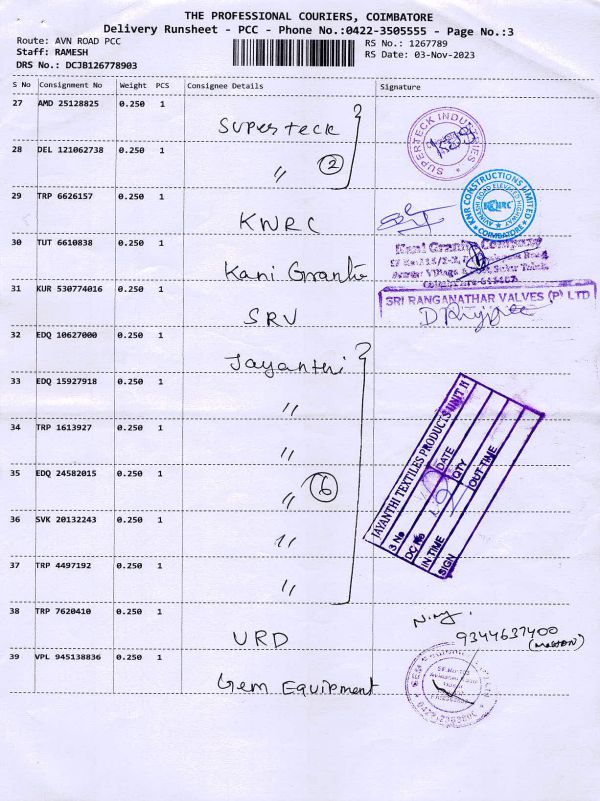 THE PROFESSIONAL COURIERS, COIMBATORE
Delivery Runsheet - PCC - Phone No.:0422-3505555 - Page No.:3
Route: AVN ROAD PCC
Staff: RAMESH
DRS No.: DCJB126778903
RS No.: 1267789
RS Date: 03-Nov-2023
S No Consignment No Weight PCS Consignee Details Signature
27 AMD 25128825 0.250 1 Superteck
SUPERTECK INDUSTRIES
28 DEL 121062738 0.250 1 〃 2
29 TRP 6626157 0.250 1 KNRC
KNR CONSTRUCTIONS LIMITED
KNRC
COIMBATORE
30 TUT 6610838 0.250 1 Kani Granite
Kani Granite Company
31 KUR 530774016 0.250 1 SRV
SRI RANGANATHAR VALVES (P) LTD
32 EDQ 10627000 0.250 1 Jayanthi
33 EDQ 15927918 0.250 1 〃
34 TRP 1613927 0.250 1 〃
35 EDQ 24582015 0.250 1 〃 6
36 SVK 20132243 0.250 1 〃
37 TRP 4497192 0.250 1 〃
JAYANTHI TEXTILES PRODUCTS UNIT II
S No DATE
DC No QTY
IN TIME OUT TIME
SIGN
38 TRP 7620410 0.250 1 URD
9344637400
39 VPL 945138836 0.250 1 Gem Equipment